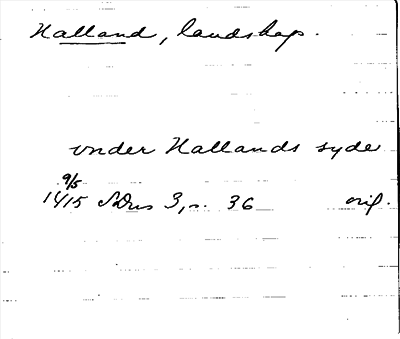 Halland, landskap.
under Hallands syde
9/5
1415 SDns 3, s. 36 orig.